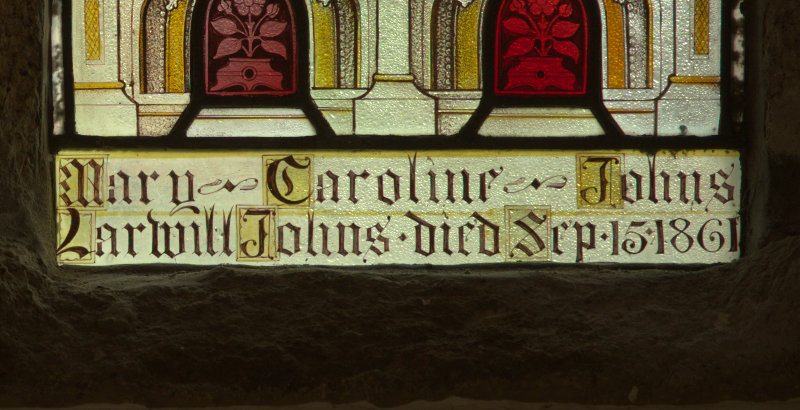 Mary Caroline Johns
Larwill Johns · died Sep · 15 · 1861